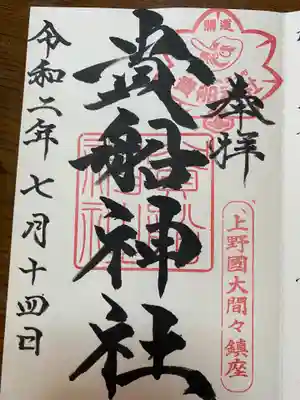 奉拝
上野國大間々鎮座
貴船神社
貴船神社
令和二年七月十四日